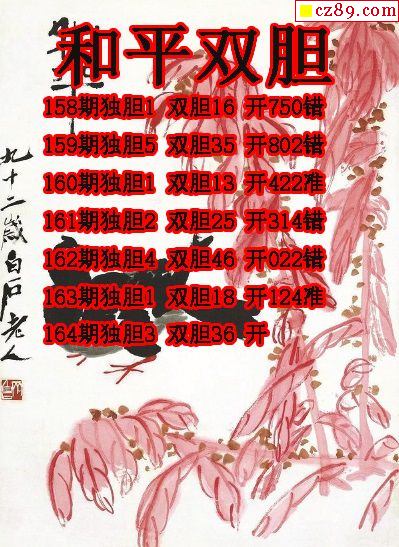 cz89.com
和平双胆
158期独胆1 双胆16 开750错
159期独胆5 双胆35 开802错
160期独胆1 双胆13 开422准
161期独胆2 双胆25 开314错
162期独胆4 双胆46 开022错
163期独胆1 双胆18 开124准
164期独胆3 双胆36 开
九十二岁白石老人